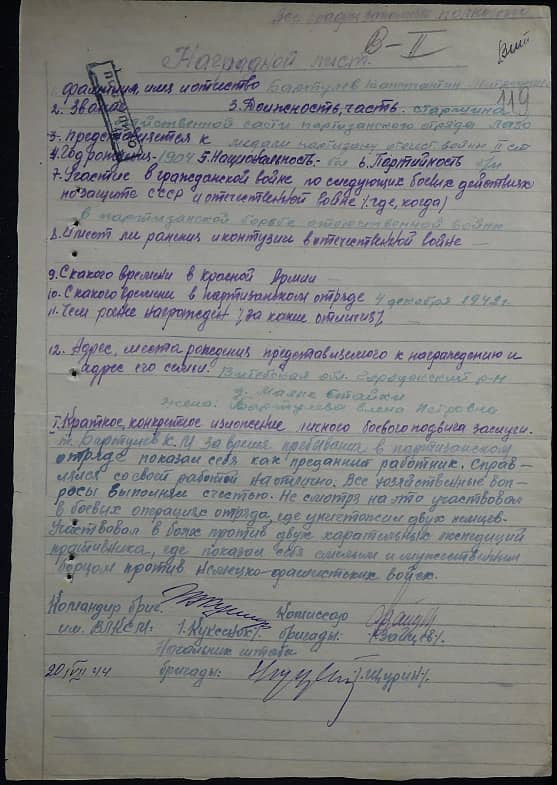 В-II
119
Наградной лист.
1. Фамилия, имя и отчество Бартулев Константин
2. Звание 3. Должность, часть. старшина
хозяйственной части партизанского отряда Лазо
3. Представляется к медали партизану отечест войны II ст
4. Год рождения - 1904 5. Национальность - бел 6. Партийность б/п
7. Участие в гражданской войне, последующих боевых действиях
по защите СССР и отечественной войне /где, когда/
в партизанской борьбе отечественной войны
8. Имеет ли ранения и контузии в отечественной войне -
9. С какого времени в красной Армии -
10. С какого времени в партизанском отряде 4 декабря 1942 г.
11. Чем ранее награжден /за какие отличия/ -
12. Адрес, места рождения представляемого к награждению и
адрес его семьи. Витебская обл. Городокский р-н
д. Малые Стайки
жена: Бартулева Елена Петровна
I. Краткое, конкретное изложение личного боевого подвига заслуги.
т. Бартулев К.М за время пребывания в партизанском
отряде показал себя как преданный работник. Справ-
лялся со своей работой на отлично. Все хозяйственные воп-
росы выполнял с честью. Не смотря на это участвовал
в боевых операциях отряда, где уничтожил двух немцев.
Участвовал в боях против двух карательных экспедиций
противника, где показал себя смелым и мужественным
борцом против немецко-фашистских войск.
Командир бриг. Комиссар
им. ВЛКСМ: /Куксенок/. бригады: /Зайцев/.
Начальник штаба
20/VII 44 бригады: /Щурин/.